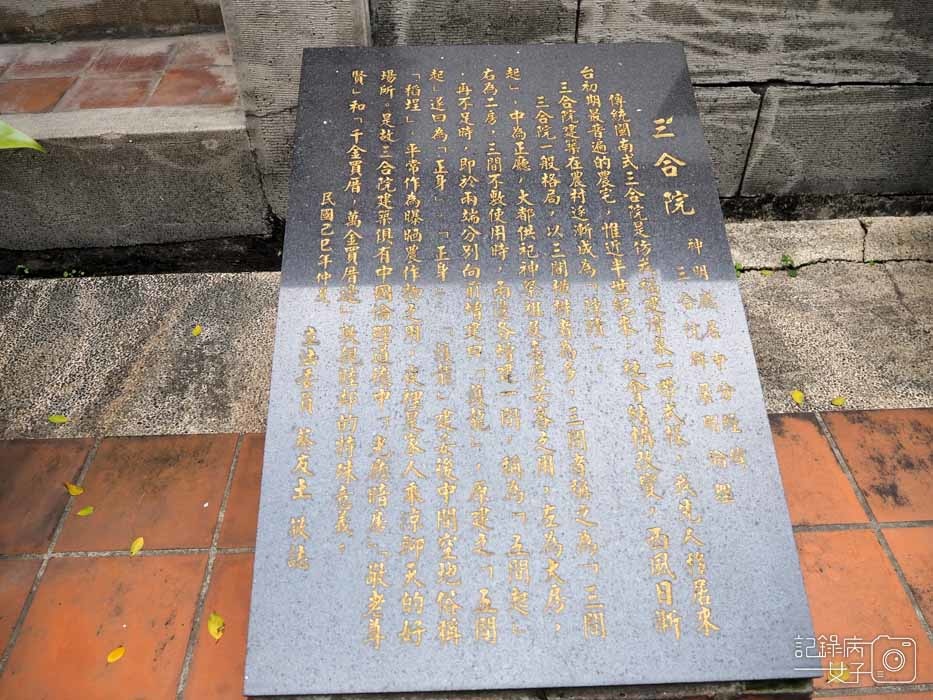 三合院
神明
三合院
傳統閩南式三合院是仿
先人移居來
台初期最普遍的農宅,惟近半世紀來,社會結構改變,西風日漸
三合院建築在農村逐漸成為
三合院一般格局,以三間
為多,三間者稱之為「三間
起」,中為正廳,大都供祀神
之用,左為大房,
右為二房,三間不敷使用時,兩邊各增建一間,稱為「五間起」
,再不足時,即於兩端分別向前增建曰「護龍」,原建之「五間
起」遂曰為「正身」,「正身」、「護龍」建妥後中間空地俗稱
「稻埕」,平常作為曝晒農作物之用,夜裡是家人乘涼聊天的好
場所。是故三合院建築俱有中國倫理道德中「光廳暗房」「敬老尊
賢」和「千金買厝,萬金買厝邊」敦親睦鄰的特殊意義。
民國己巳年仲
立法委員 蔡友土 敬誌
記錄病
女子